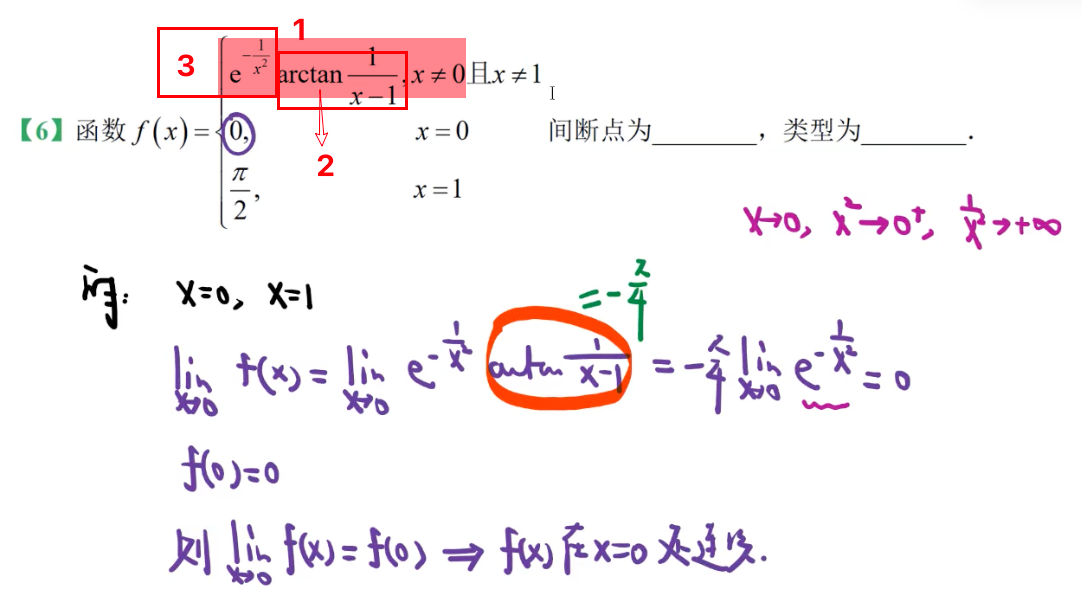 3
1
e^{-\frac{1}{x^2}} arctan \frac{1}{x-1}, x ≠ 0且x ≠ 1
2
【6】函数 f(x) = { 0, x = 0 间断点为________，类型为________.
\frac{π}{2}, x = 1
x→0, x²→0⁺, \frac{1}{x²}→+∞
x=0, x=1
= -\frac{π}{4}
\lim_{x→0} f(x) = \lim_{x→0} e^{-\frac{1}{x²}} arctan \frac{1}{x-1} = -\frac{π}{4} \lim_{x→0} e^{-\frac{1}{x²}} = 0
f(0)=0
则 \lim_{x→0} f(x) = f(0) ⇒ f(x) 在 x=0 处连续.